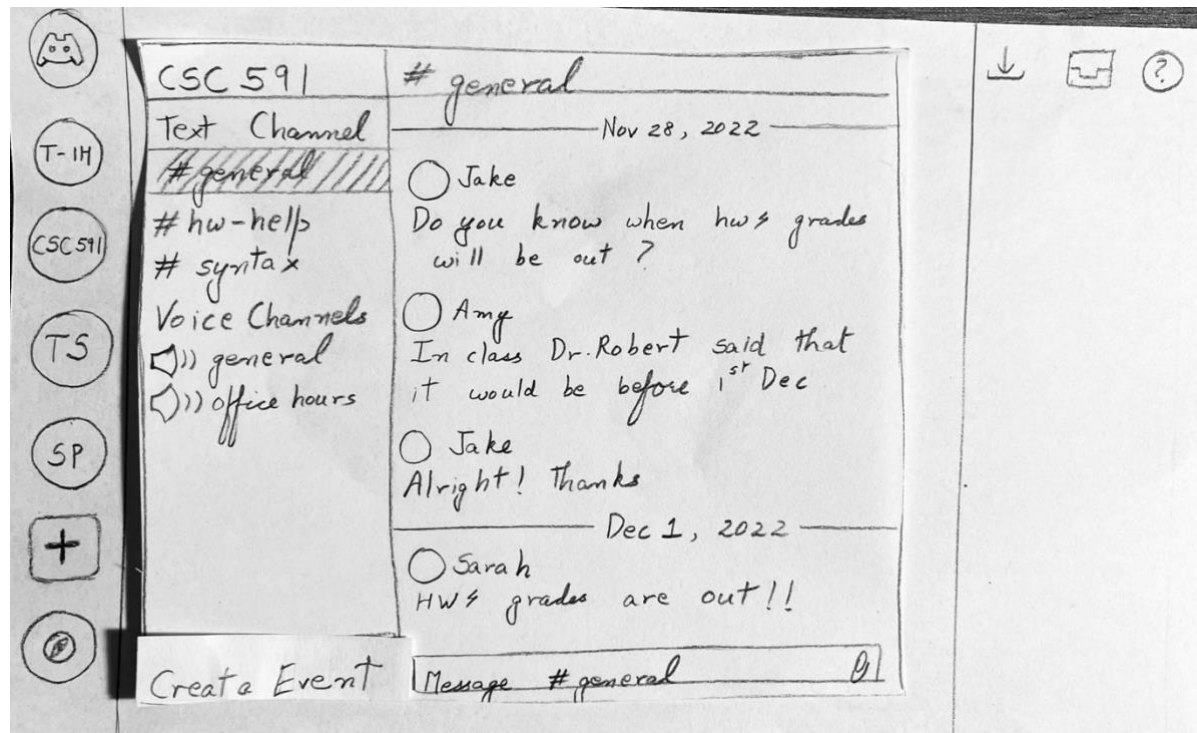 T-1H
CSC591
TS
SP
+
CSC 591
Text Channel
# general
# hw-help
# syntax
Voice Channels
general
office hours
Create Event
# general
Nov 28, 2022
Jake
Do you know when hw4 grades
will be out ?
Amy
In class Dr. Robert said that
it would be before 1st Dec
Jake
Alright! Thanks
Dec 1, 2022
Sarah
HW4 grades are out!!
Message # general
?